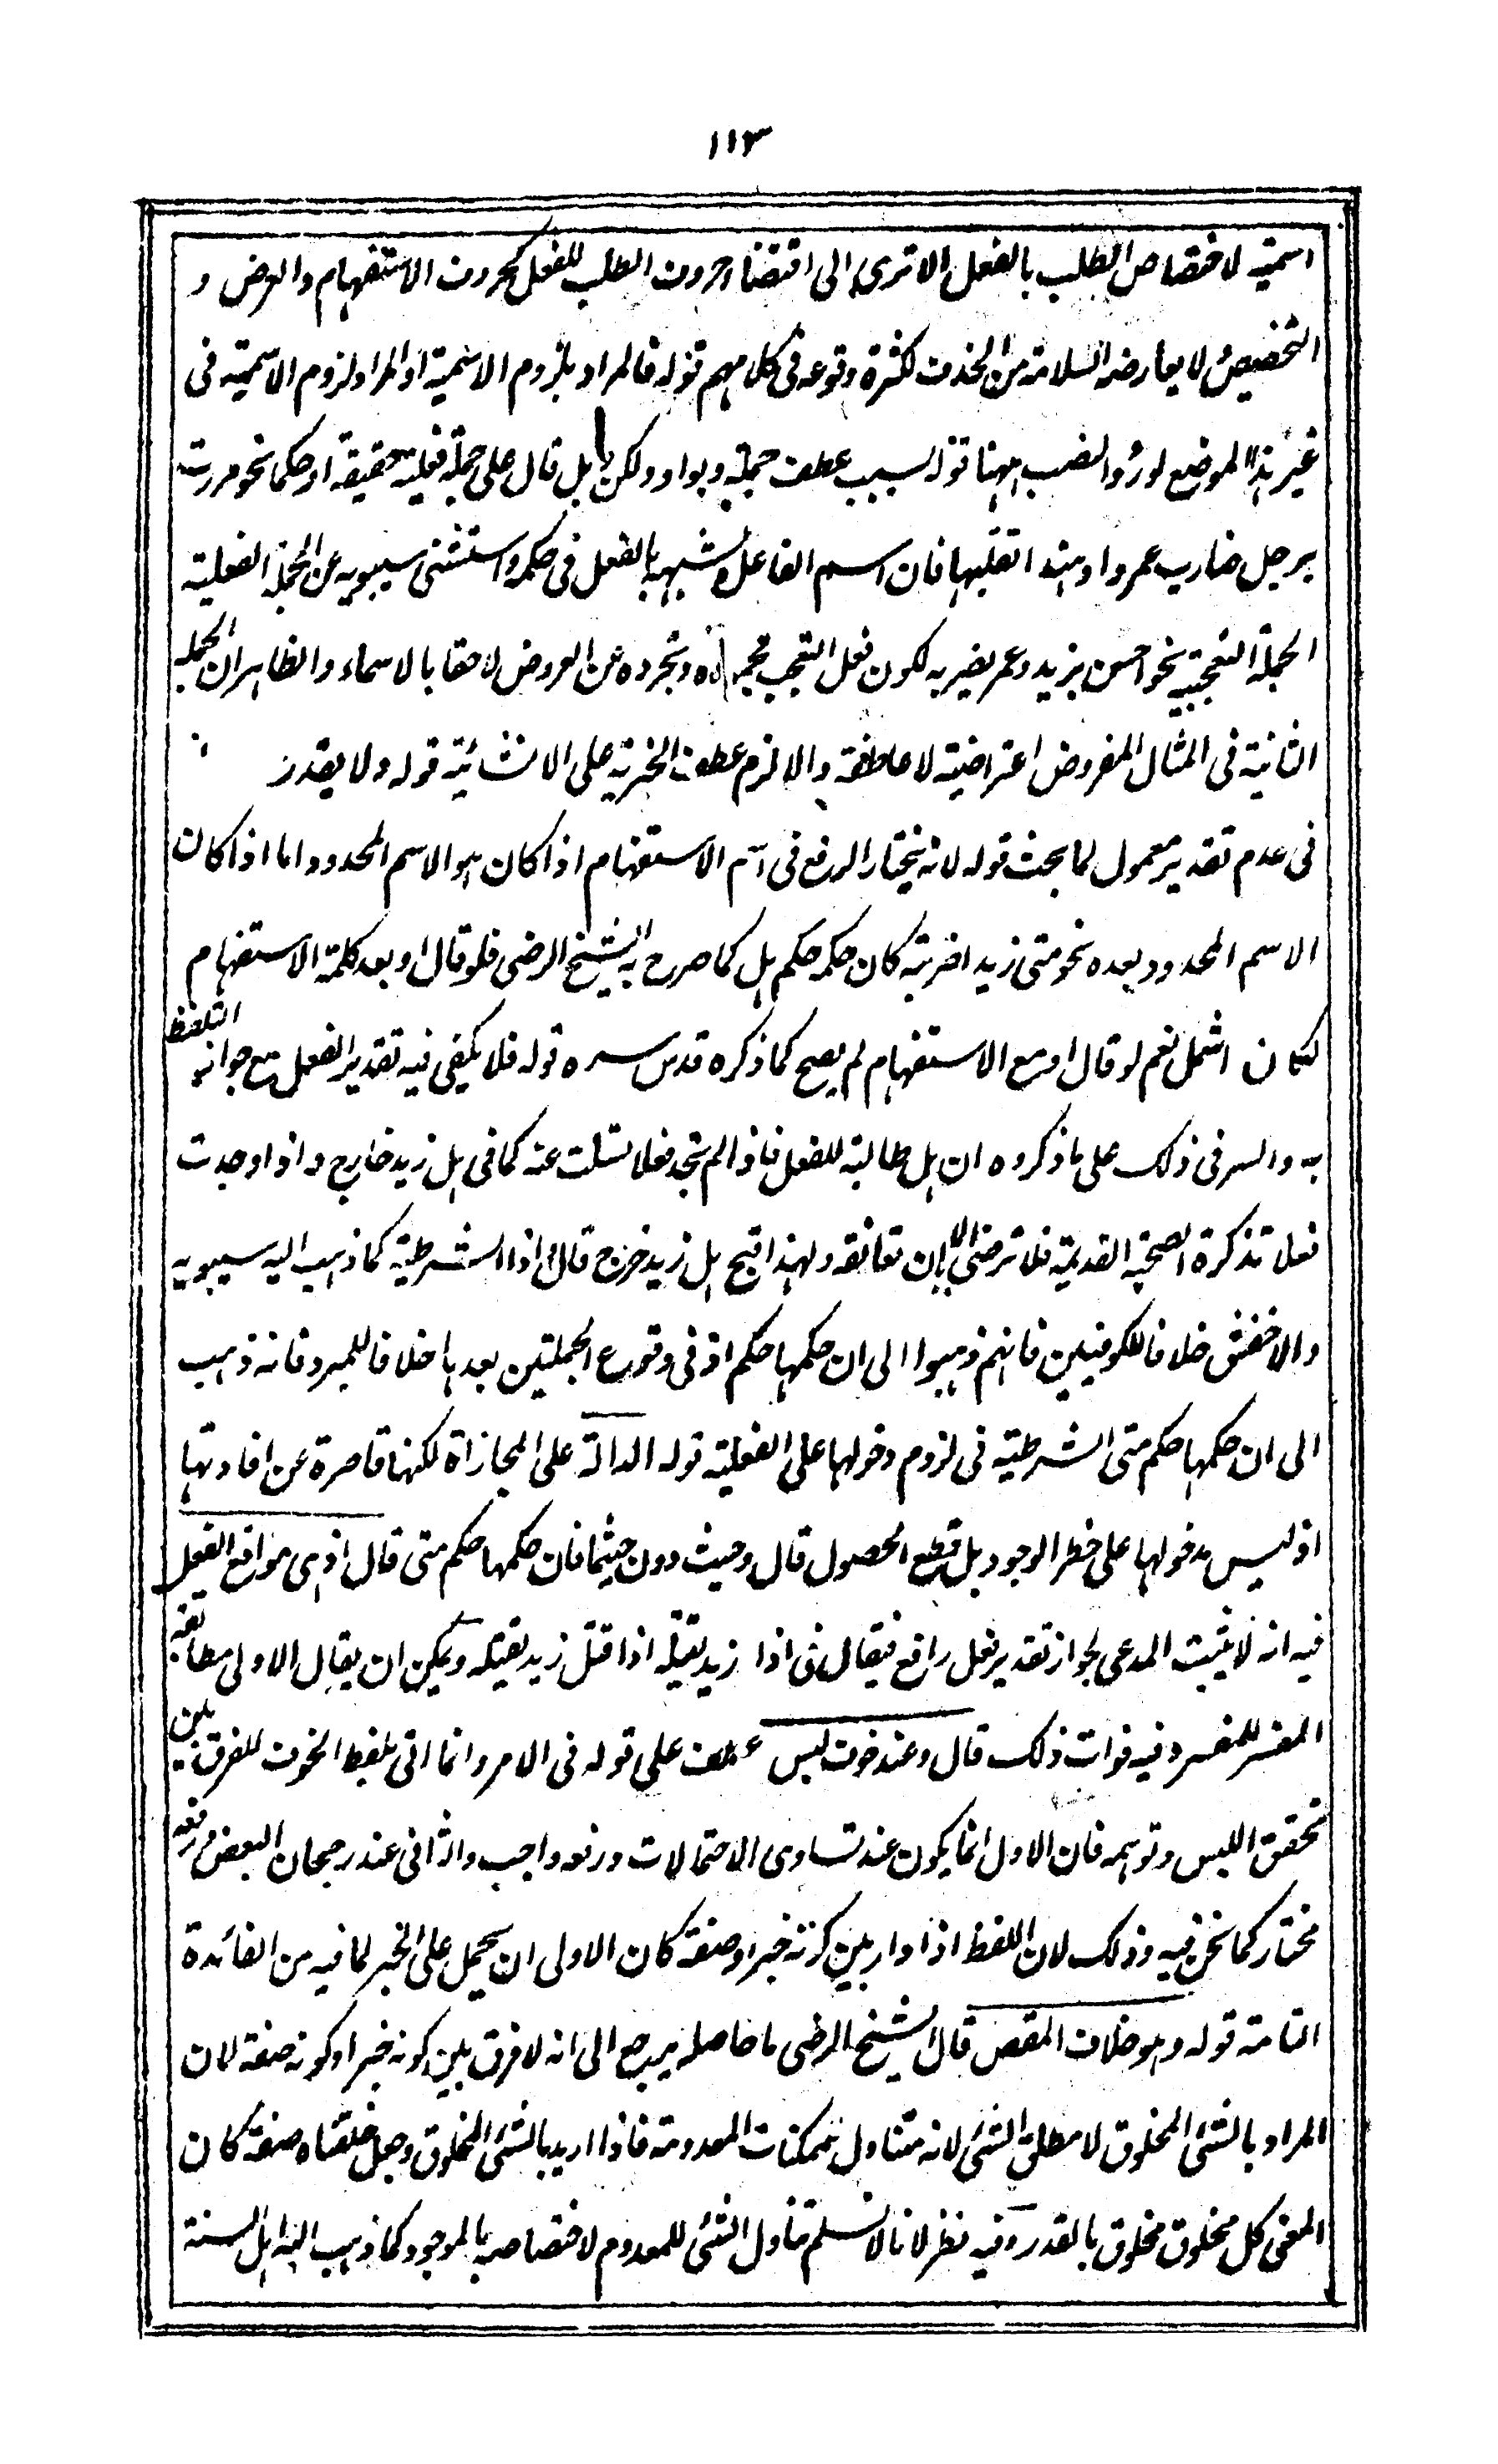 ١١٣
اسمية لاختصاص الطلب بالفعل الا ترى الى اقتضاء حروف الطلب للفعل كحروف الاستفهام والعرض و
التخصيص لا يعارضه السلامة من الحذف لكثرة وقوعه فى كلامهم قوله فالمراد بلزوم الاسمية او المراد لزوم الاسمية فى
غير هذا الموضع لورود النصب ههنا قوله بسبب عطف جملة وبواو ولكن بل قال على جملة فعلية حقيقة او حكما نحو مررت
برجل ضارب عمروا وهندا تقتلها فان اسم الفاعل لشبهه بالفعل فى حكمه واستثنى سيبويه عن الجملة الفعلية
الجملة التعجبية نحو احسن بزيد وعمر يضربه لكون فعل التعجب وتجرده عن العروض لاحقا بالاسماء والظاهر ان الجملة
الثانية فى المثال المفروض اعتراضية لا عاطفة والا لزم عطف الخبرية على الانشائية قوله ولا يقدر
فى عدم تقدير معمول لما بحث قوله لانه يختار الرفع فى اسم الاستفهام اذا كان هو الاسم المحدود اما اذا كان
الاسم المحدود بعده نحو متى زيدا ضربته كان حكمه حكم هل كما صرح به الشيخ الرضى فلو قال او بعد كلمة الاستفهام
لكان اشمل نعم لو قال او مع الاستفهام لم يصح كما ذكره قدس سره قوله فلا يكفى فيه تقدير الفعل مع جواز التلفظ
به والسر فى ذلك على ما ذكروه ان هل طالبة للفعل فاذا لم تجد فعلا تسلت عنه كما فى هل زيد خارج واذا وجدت
فعلا تذكرة الصحبة القديمة فلا ترضى الا بان تعانقه ولهذا قبح هل زيد خرج قال اذا الشرطية كما ذهب اليه سيبويه
والاخفش خلافا للكوفيين فانهم ذهبوا الى ان حكمها حكم اذ فى وقوع الجملتين بعدها خلافا للمبرد فانه ذهب
الى ان حكمها حكم متى الشرطية فى لزوم دخولها على الفعلية قوله الدالة على المجازاة لكنها قاصرة عن افادتها
اذ ليس مدخولها على خطر الوجود بل قطع الحصول قال وحيث دون حيثما فان حكمها حكم متى قال اذ هى مواقع الفعل
فيه انه لا يثبت المدعى لجواز تقدير فعل رافع فيقال فى اذا زيد يقتله اذا قتل زيد يقتله ويمكن ان يقال الاولى مطابقة
المفسر للمفسر وفيه فوات ذلك قال وعند خوف لبس عطف على قوله فى الامر وانما اتى بلفظ الخوف للفرق بين
تحقق اللبس وتوهمه فان الاول انما يكون عند تساوى الاحتمالات ورفعه واجب والثانى عند رجحان البعض ورفعه
مختار كما نحن فيه وذلك لان اللفظ اذا دار بين كونه خبرا وصفة كان الاولى ان يحمل على الخبر لما فيه من الفائدة
التامة قوله وهو خلاف المقص قال الشيخ الرضى ما حاصله يرجع الى انه لا فرق بين كونه خبرا وكونه صفة لان
المراد بالشئ المخلوق لا مطلق الشئ لانه متناول للممكنات المعدومة فاذا اريد بالشئ المخلوق وجعل خلقناه صفة كان
المعنى كل مخلوق مخلوق بالقدر وفيه نظر لانا لا نسلم تناول الشئ للمعدوم لاختصاصه بالموجود كما ذهب اليه اهل السنة